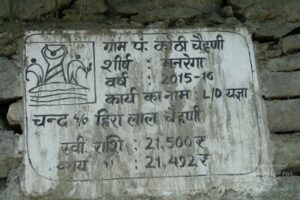 ग्राम पं. कोठी चैहणी
शीर्ष : मनरेगा
वर्ष : 2015-16
कार्य का नाम : L/D यज्ञा
चन्द s/o हिरा लाल चैहणी
स्वी. राशि : 21,500 ₹
व्यय " : 21,492 ₹